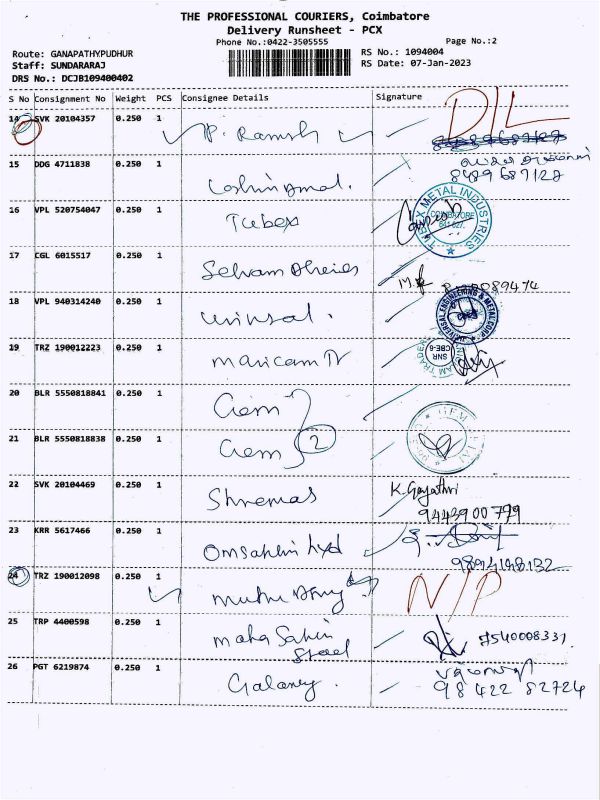 THE PROFESSIONAL COURIERS, Coimbatore
Delivery Runsheet - PCX
Phone No.:0422-3505555
Page No.:2
Route: GANAPATHYPUDHUR
Staff: SUNDARARAJ
DRS No.: DCJB109400402
RS No.: 1094004
RS Date: 07-Jan-2023
S No Consignment No Weight PCS Consignee Details Signature
14 SVK 20104357 0.250 1 P. Ramesh D/L
15 DDG 4711838 0.250 1 8489687127
16 VPL 520754047 0.250 1 Tubex TUBEX METAL INDUSTRIES COIMBATORE
17 CGL 6015517 0.250 1 Selvam
18 VPL 940314240 0.250 1 UNIVERSAL ENGINEERING & METAL CORP
19 TRZ 190012223 0.250 1 SNR CBE-6
20 BLR 5550818841 0.250 1 Gem
21 BLR 5550818838 0.250 1 Gem 2 GEM
22 SVK 20104469 0.250 1 Shremas K. Gayathri
9443900799
23 KRR 5617466 0.250 1
24 TRZ 190012098 0.250 1 N/P
25 TRP 4400598 0.250 1 Maha Sakthi 7540008331
Steel
26 PGT 6219874 0.250 1 Galaxey.
98422 82724